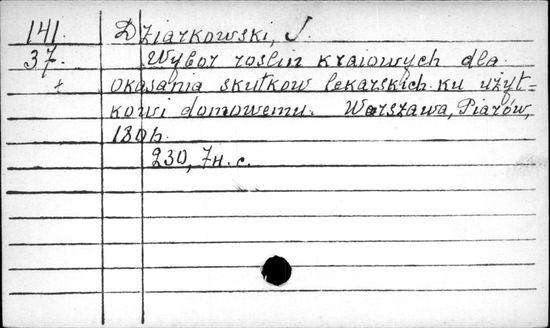 141. Dziarkowski, J.
37. Wybor roslin kraiowych dla
+ okasania skutkow lekarskich ku użyt=
kowi domowemu. Warszawa, Piarów,
180h.
230, 7н. с.